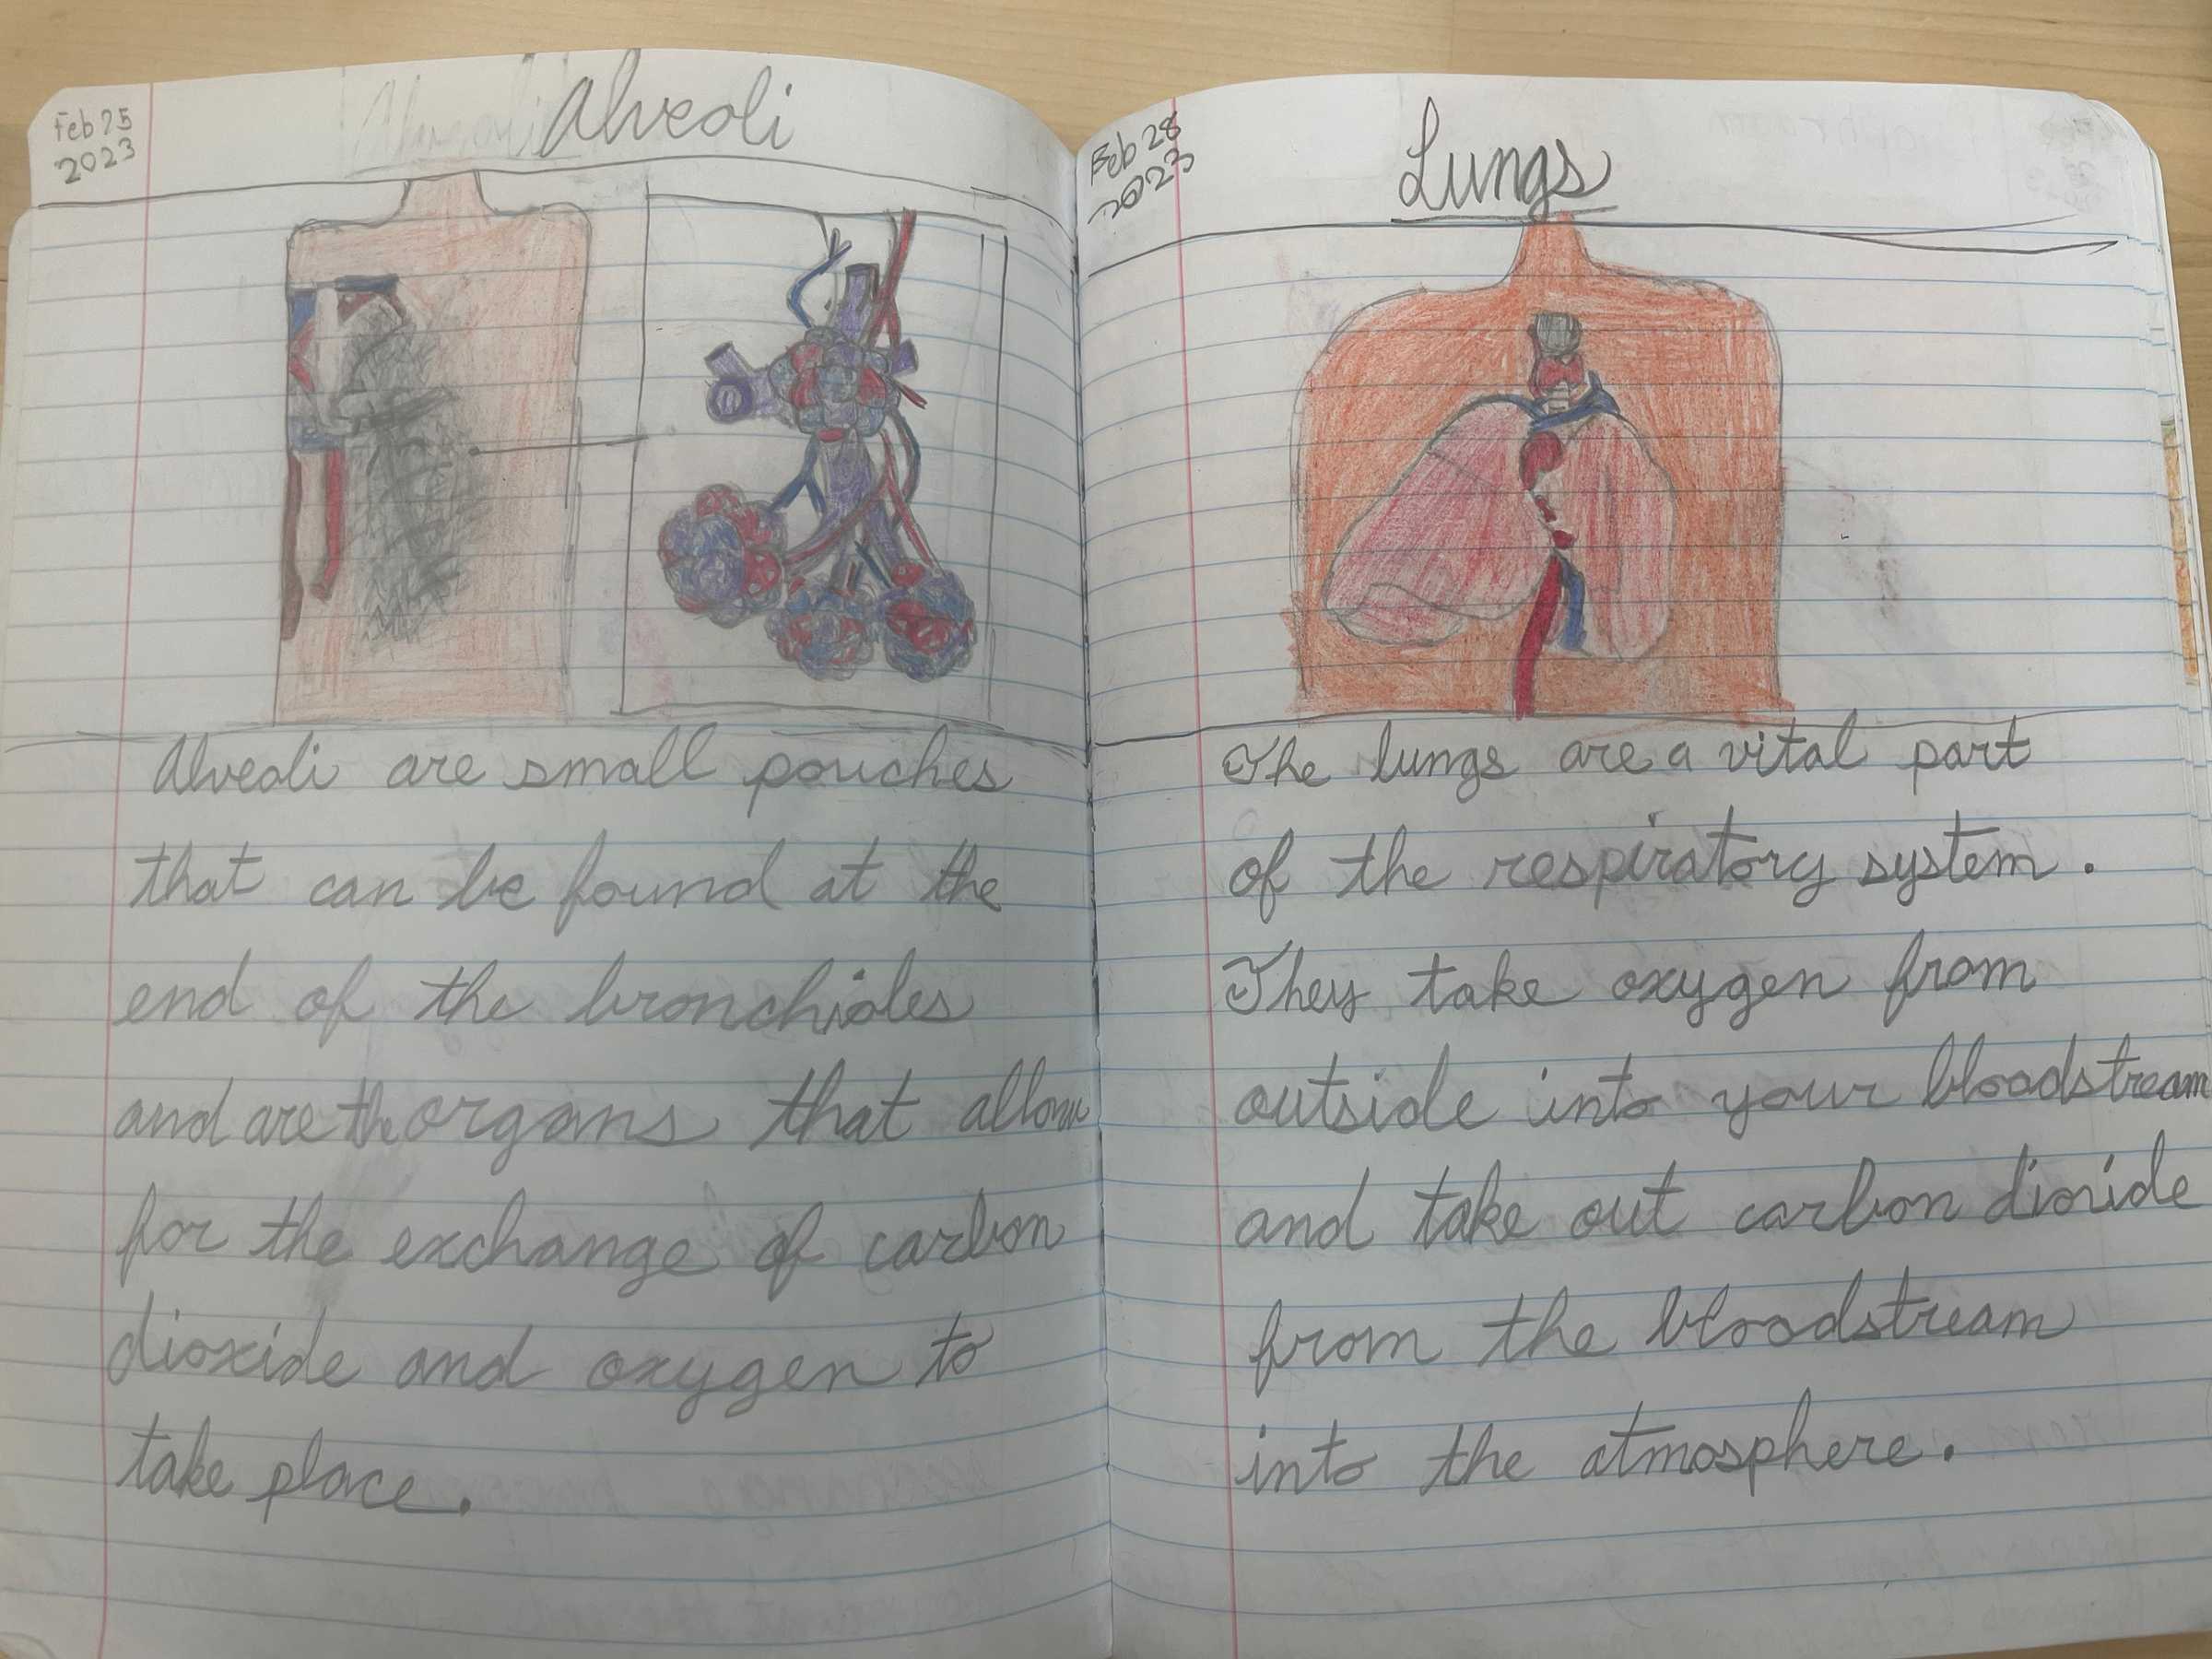 Feb 25
2023
Alveoli
Alveoli are small pouches
that can be found at the
end of the bronchioles
and are the organs that allow
for the exchange of carbon
dioxide and oxygen to
take place.
Feb 28
2023
Lungs
The lungs are a vital part
of the respiratory system.
They take oxygen from
outside into your bloodstream
and take out carbon dioxide
from the bloodstream
into the atmosphere.